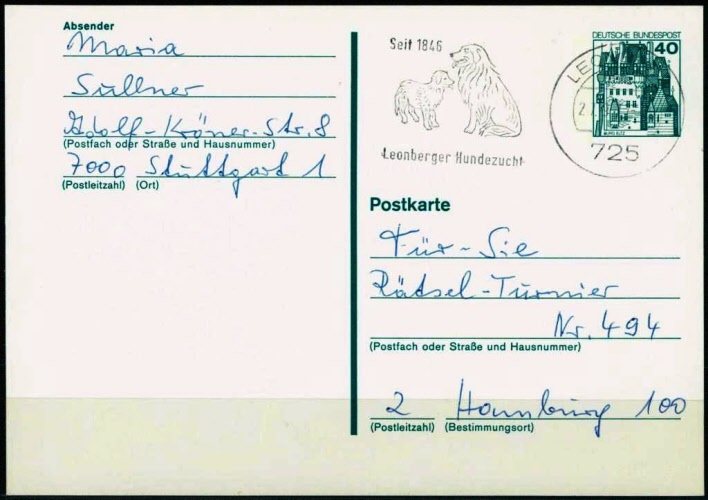 Absender
Maria
Sullner
Adolf-Kröner-Str. 8
(Postfach oder Straße und Hausnummer)
7000 Stuttgart 1
(Postleitzahl) (Ort)
Seit 1846
Leonberger Hundezucht
DEUTSCHE BUNDESPOST
40
725
Postkarte
Für-Sie
Rätsel-Turnier
Nr. 494
(Postfach oder Straße und Hausnummer)
2 Hamburg 100
(Postleitzahl) (Bestimmungsort)